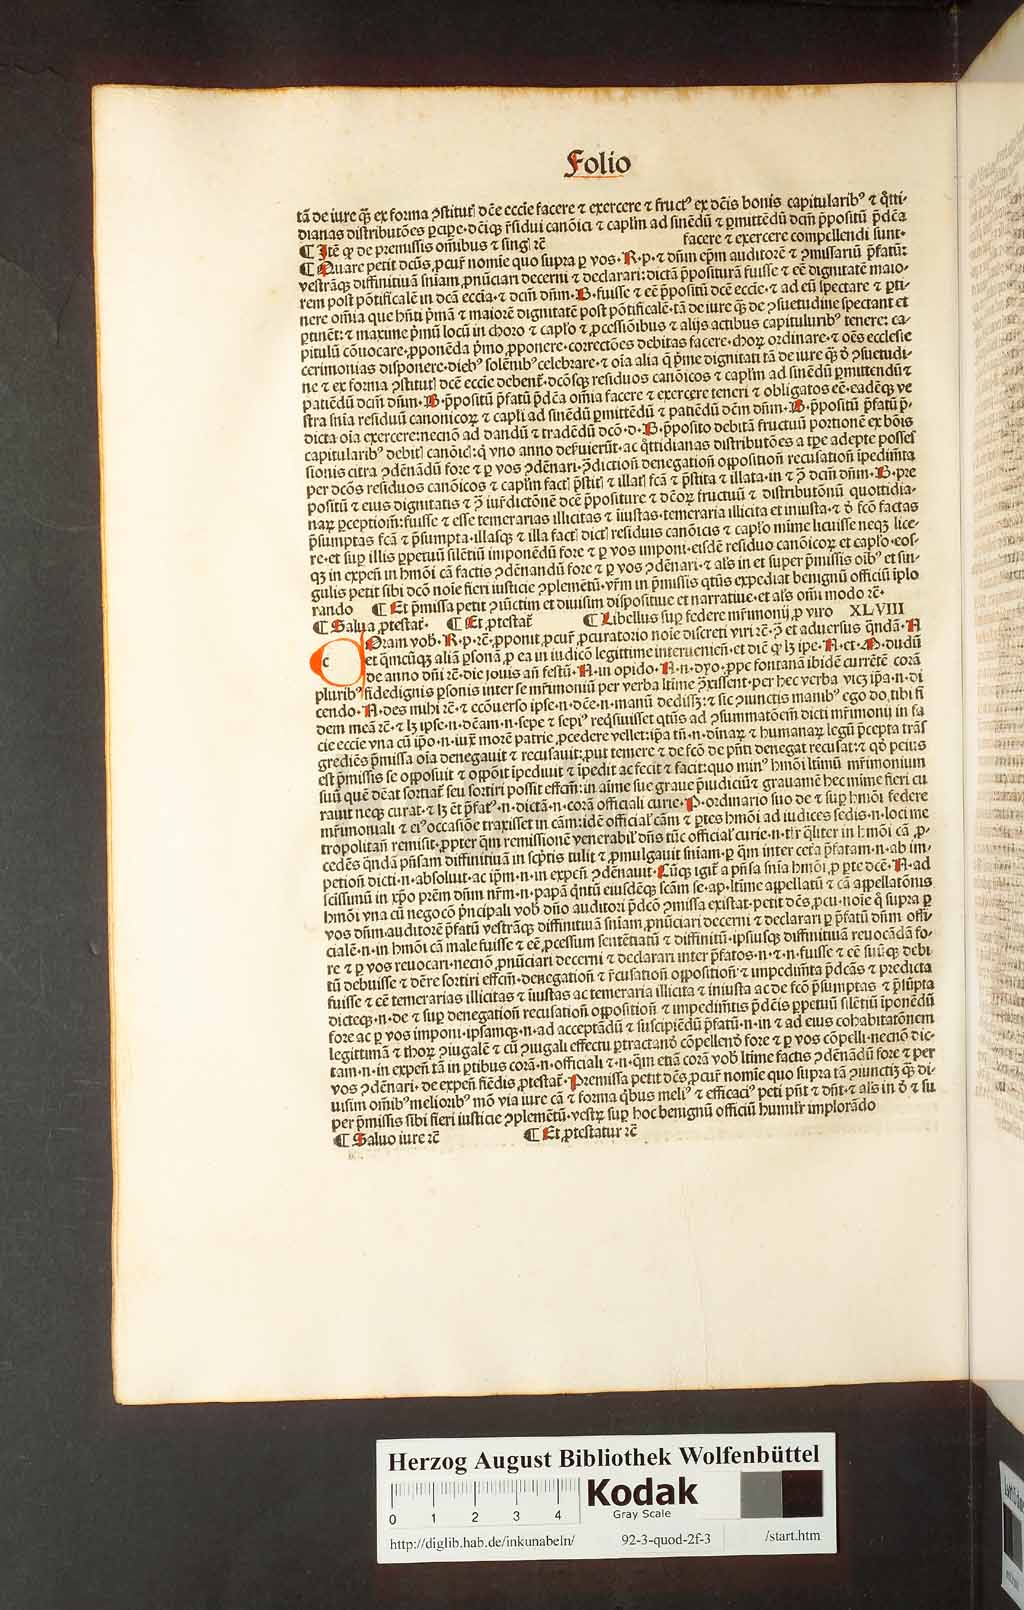 Folio
tā de iure qȝ ex forma ꝯstitut dc̄e eccīe facere ⁊ exercere ⁊ fructꝰ ex dc̄is bonis capitularibꝰ ⁊ q̄tti-
dianas distributōes ꝑcipe·dc̄iqȝ r̄sidui canōici ⁊ capl̄m ad sinēdū ⁊ ꝑmittēdū dcm̄ p̄positū p̄dc̄a
¶ Itē ꝙ de premissis om̄ibus ⁊ sing rc̄ facere ⁊ exercere compellendi sunt·
¶ Quare petit dc̄us ꝓcur̄ nomīe quo supra ꝑ vos·R·p·⁊ dn̄m ep̄m auditorē ⁊ ꝯmissariū p̄fatū:
vestrāqȝ diffinitiuā sn̄iam ꝓnūciari decerni ⁊ declarari: dictā p̄positurā fuisse ⁊ eē dignitatē maio-
rem post pōtificalē in dc̄a eccīa·⁊ dcm̄ dn̄m·B·fuisse ⁊ eē p̄positū dc̄e eccīe·⁊ ad eū spectare ⁊ ꝑti-
nere om̄ia que hn̄ti p̄mā ⁊ maiorē dignitatē post pōtificalē·tā de iure qȝ de ꝯsuetudine spectant et
ꝑtinēt: ⁊ maxime p̄mū locū in choro ⁊ capl̄o ⁊ ꝓcessiōibus ⁊ alijs actibus capitularibꝰ tenere: ca-
pitulū cōuocare·ꝓponēda p̄mo ꝓponere·correctōes debitas facere·choꝝ ordinare·⁊ oēs ecclesie
cerimonias disponere·diebꝰ solēnibꝰ celebrare·⁊ oīa alia q̄ p̄me dignitati tā de iure qȝ ō ꝯsuetudi-
ne ⁊ ex forma ꝯstitut dc̄e eccīe debent̄·dcōsqȝ residuos canōicos ⁊ capl̄m ad sinēdū ꝑmittendū ⁊
patiēdū dcm̄ dn̄m·B·p̄positū p̄fatū p̄dc̄a om̄ia facere ⁊ exercere teneri ⁊ obligatos eē·eadēqȝ ve
stra sn̄ia residuū canonicoꝝ ⁊ capl̄i ad sinēdū ꝑmittēdū ⁊ patiēdū dc̄m dn̄m·B·p̄positū p̄fatū p̄-
dicta oīa exercere: necnō ad dandū ⁊ tradēdū dcō·D·B·p̄posito debitā fructuū portionē ex bōis
capitularibꝰ debit canōicī: q̄ vno anno defuierūt·ac q̄ttidianas distributōes a tꝑe adepte posses
sionis citra ꝯdēnādū fore ⁊ ꝑ vos ꝯdēnari·ꝓdictiōn̄ denegatiōn̄ oppositiōn̄ recusatiōn̄ īpedim̄ta
per dcōs residuos canōicos ⁊ capl̄m fact p̄stit ⁊ illat fcā ⁊ p̄stita ⁊ illata·in ⁊ ꝯ dcm̄ dn̄m·B·pre
positū ⁊ eius dignitatis ⁊ ꝯ iur̄dictōnē dc̄e p̄positure ⁊ dcōꝝ fructuū ⁊ distributōnū quottidia-
naꝝ ꝑceptiom̄: fuisse ⁊ esse temerarias illicitas ⁊ īiustas·temeraria illicita et iniusta·⁊ ō fcō factas
p̄sumptas fcā ⁊ p̄sumpta·illasqȝ ⁊ illa fact dict residuis canōicis ⁊ capl̄o mīme licuisse neqȝ lice-
re·et suꝑ illis ꝑpetuū silētiū imponēdū fore ⁊ ꝑ vos imponi·eisdē residuo canōicoꝝ et capl̄o·eos-
qȝ in expen̄ in hmōi cā factis ꝯdēnandū fore ⁊ ꝑ vos ꝯdēnari·⁊ al̄s in et super p̄missis oībꝰ et sin-
gulis petit sibi dcō noīe fieri iusticie ꝯplemētū·vr̄m in p̄missis qtūs expediat benignū officiū iplo
rando ¶ Et p̄missa petit ꝯiūctim et diuisim dispositiue et narratiue·et al̄s om̄i modo rc̄·
¶ Salua ꝓtestat̄· ¶ Et ꝓtestat̄ ¶ Libellus suꝑ federe mr̄imonij ꝓ viro XLVIII
c Oram vob̄·R·p·rc̄·ꝓponit ꝓcur̄ ꝓcuratorio noīe discreti viri rc̄·ꝯ et aduersus q̄ndā·A
et q̄mcūqȝ aliā ꝑsonā ꝓ ea in iudicō legittime interuenien̄·et dic̄ ꝙ lȝ ipe·A·et·B·dudū
de anno dn̄i rc̄·die iouis an̄ festū·A·in opido·A·n·dyo·ꝓpe fontanā ibidē currētē corā
pluribꝰ fidedignis ꝑsonis inter se mr̄imoniū per verba ltīme ꝯxissent·per hec verba vicȝ ip̄a·n·di
cendo·A·des mihi rc̄·⁊ ecōuerso ipse·n·dc̄e·n·manū dedissȝ: ⁊ sic ꝯiunctis manibꝰ ego do tibi fi
dem meā rc̄·⁊ lȝ ipse·n·dc̄am·n·sepe ⁊ sepiꝰ reqsiuisset qtūs ad ꝯsummatōem̄ dicti mr̄imonij in fa
cie eccīe vna cū ip̄o·n·iux̄ morē patrie ꝓcedere vellet: ip̄a tn̄·n·diuinaꝝ ⁊ humanaꝝ legū p̄cepta trās
grediēs p̄missa oīa denegauit ⁊ recusauit: put temere ⁊ de fcō de pn̄ti denegat recusat: ⁊ qd̄ peius
est p̄missis se opposuit ⁊ oppōit īpediuit ⁊ īpedit ac fecit ⁊ facit: quo minꝰ hmōi ltīmū mr̄imonium
suū quē dc̄at sortiat̄ seu sortiri possit effcm̄: in aīme sue graue p̄iudiciū ⁊ grauamē hec mīme fieri cu
rauit neqȝ curat·⁊ lȝ ēt p̄fatꝰ·n·dictā·n·corā officiali curie·P·ordinario suo de ⁊ suꝑ hmōi federe
mr̄imoniali ⁊ eiꝰ occasiōe traxisset in cām: idē official̄ cām ⁊ ꝑtes hmōi ad iudices sedis·n·loci me
tropolitan̄ remisit·ꝓpter q̄m remissionē venerabil̄ dn̄s tūc official̄ curie·n·tr̄ q̄liter in hmōi cā ꝓ-
cedēs q̄ndā pn̄sam diffinitiuā in scp̄tis tulit ⁊ ꝓmulgauit sn̄iam·ꝑ q̄m inter cet̄a p̄fatam·n·ab im-
petiōn̄ dicti·n·absoluit·ac ip̄m·n·in expen̄ ꝯdēnauit·Cūqȝ igit̄ a pn̄sa sn̄ia hmōi ꝓ ꝑte dc̄e·A·ad
scissimū in xp̄o pr̄em dn̄m nr̄m·n·papā q̄ntū eiusdēqȝ scām se·ap·ltīme appellatū ⁊ cā appellatōnis
hmōi vna cū negocō p̄ncipali vob̄ dn̄o auditori p̄dcō ꝯmissa existat·petit dc̄s ꝓcu·noīe q̄ supra ꝑ
vos dn̄m·auditorē p̄fatū vestrāqȝ diffinitiuā sn̄iam ꝓnūciari decerni ⁊ declarari ꝑ p̄fatū dn̄m offi-
cialē·n·in hmōi cā male fuisse ⁊ eē ꝓcessum sentētiatū ⁊ diffinitū·ipsiusqȝ diffinitiuā reuocādā fo-
re ⁊ ꝑ vos reuocari·necnō ꝓnūciari decerni ⁊ declarari inter p̄fatos·n·⁊·n·fuisse ⁊ eē suūqȝ debi
tū debuisse ⁊ dēre sortiri effcm̄·denegatiōn̄ ⁊ r̄cusatiōn̄ oppositiōn̄·⁊ impedim̄ta p̄dc̄as ⁊ predicta
fuisse ⁊ eē temerarias illicitas ⁊ īiustas ac temeraria illicita ⁊ iniusta ac de fcō p̄sumptas ⁊ p̄sūpta
dicteqȝ·n·de ⁊ suꝑ denegatiōn̄ recusatiōn̄ oppositiōn̄ ⁊ impedim̄tis p̄dc̄is ꝑpetuū silētiū īponēdū
fore ac ꝑ vos imponi·ipsamqȝ·n·ad acceptādū ⁊ suscipiēdū p̄fatū·n·in ⁊ ad eius cohabitatōnem
legittimā ⁊ thoꝝ ꝯiugalē ⁊ cū ꝯiugali effectu ꝑtractandō cōpellendō fore ⁊ ꝑ vos cōpelli·necnō dic-
tam·n·in expen̄ tā in ꝑtibus corā·n·officiali ⁊·n·q̄m etiā corā vob̄ ltīme factis ꝯdēnādū fore ⁊ per
vos ꝯdēnari·de expen̄ fiēdis ꝓtestat̄·Premissa petit dc̄s ꝓcur̄ nomīe quo supra tā ꝯiunctiȝ qȝ di-
uisim om̄ibꝰ melioribꝰ mō via iure cā ⁊ forma q̄bus meliꝰ ⁊ efficaciꝰ peti pn̄t ⁊ dn̄t·⁊ al̄s in ō ⁊ su
per p̄missis sibi fieri iusticie ꝯplemētū·vestꝝ suꝑ hoc benignū officiū humilr̄ implorādo
¶ Saluo iure rc̄ ¶ Et ꝓtestatur rc̄
Herzog August Bibliothek Wolfenbüttel
0 1 2 3 4
Kodak
Gray Scale
http://diglib.hab.de/inkunabeln/ 92-3-quod-2f-3 /start.htm